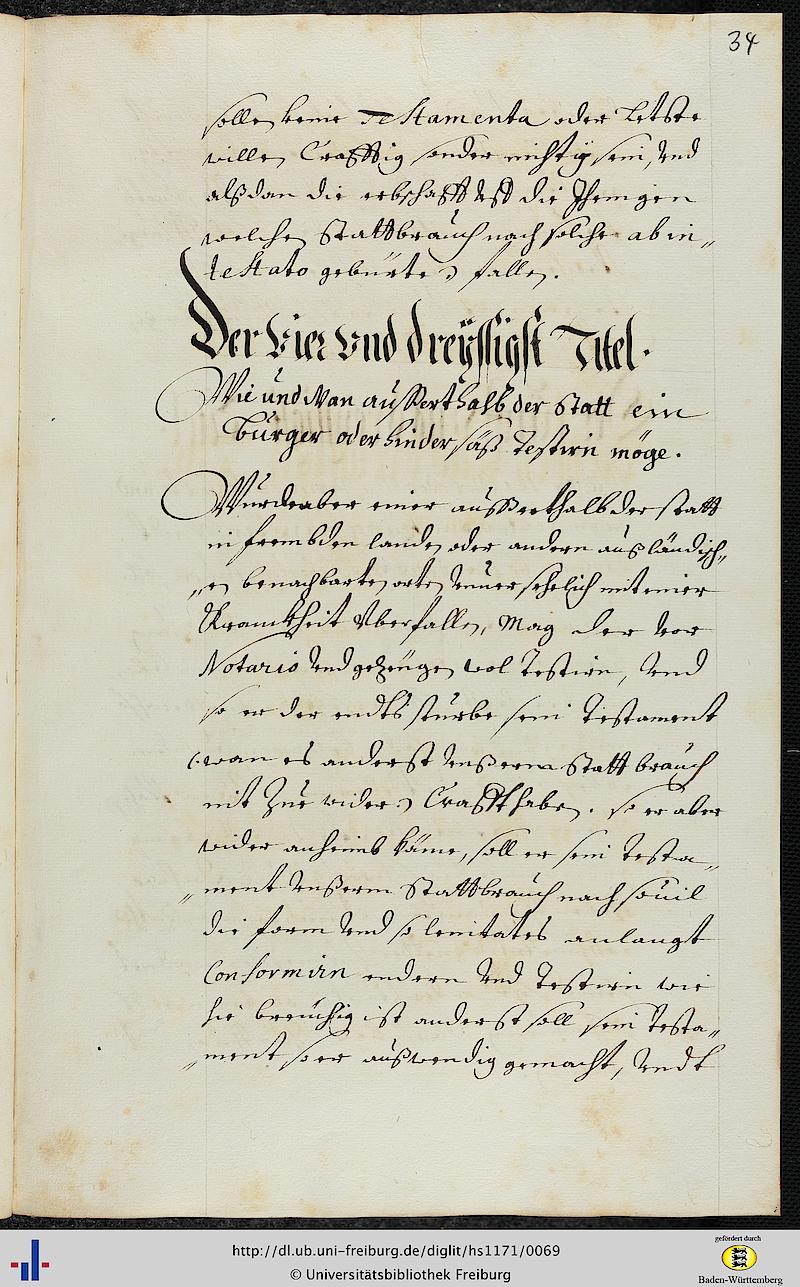 34
sollen keine Testamenta oder Letste
willen Crafftig sonder nichtig sein, und
alßdan die erbschafft uff die Jhenigen
welchen Stattbrauch nach solche ab in„
testato gebürte) fallen.
Der vier und dreÿssigst Titel.
Wie und Wan ausserthalb der Statt ein
burger oder hindersäß Testirn möge.
Wurde aber einer ausserthalb der statt
in frembden landen oder andern außländisch„
„en benachbarten orten unversehelich mit einer
Kranckheit Uberfallen, Mag der vor
Notario und gezeügen wol Testirn, und
so er der endts sturbe sein Testament
(:wan es anderst unßerm Statt brauch
nit Zuwider:) Crafft haben. so er aber
wider anheimb käme, soll er sein Testa„
„ment unßerm Stattbrauch nach souil
die form und solenitates anlangt
Conformirn endern und Testirn wie
hie breüchig ist anderst soll sein Testa„
„ment so er außwendig gemacht, und
http://dl.ub.uni-freiburg.de/diglit/hs1171/0069
© Universitätsbibliothek Freiburg
gefördert durch
Baden-Württemberg